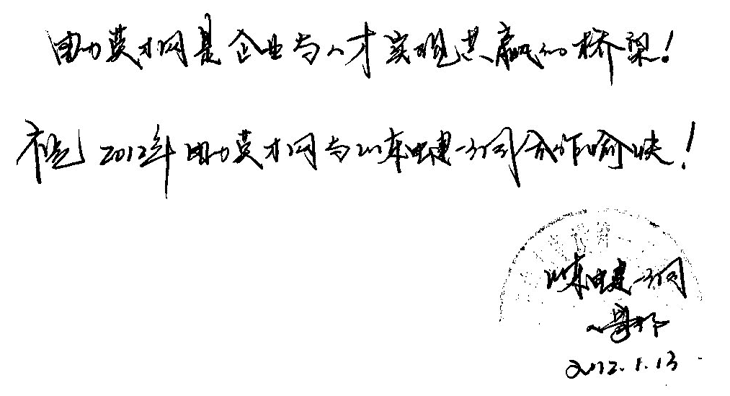 电力英才网是企业与人才实现共赢的桥梁!
祝2012年电力英才网与山东电建一公司合作愉快!
山东电建一公司
人资部
2012.1.13